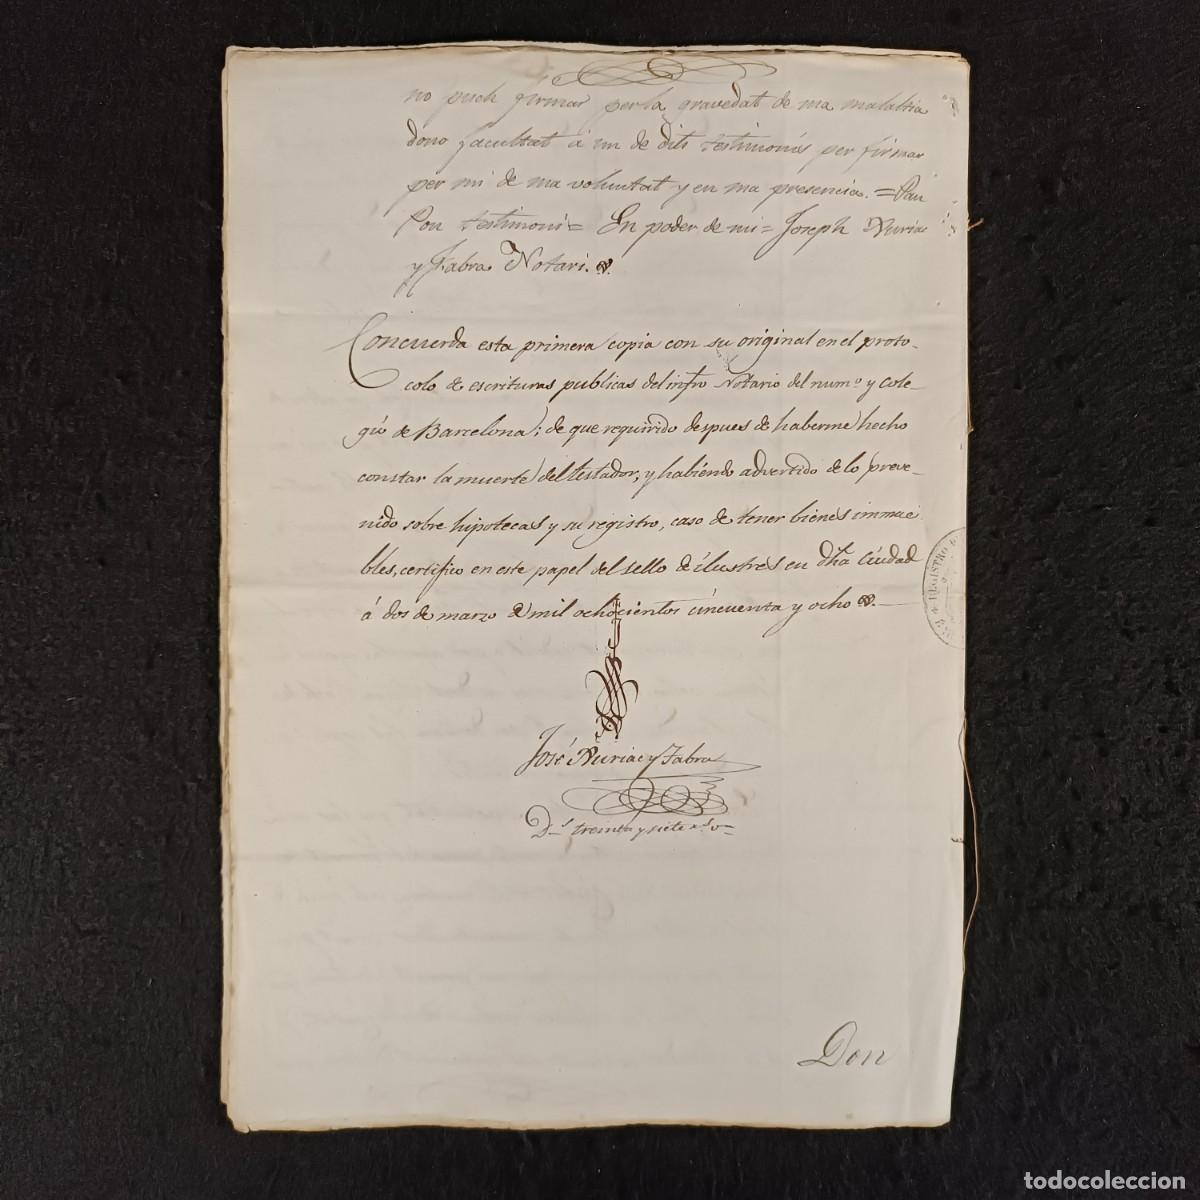 no puch firmar per la gravedat de ma malaltia
dono facultat á un de dits testimonis per firmar
per mi de ma voluntat y en ma presencia. = Pau
Pou testimoni = En poder de mi = Joseph Nuriac
y Fabra Notari.
Concuerda esta primera copia con su original en el proto-
colo de escrituras publicas del infro Notario del numo y Cole-
gio de Barcelona; de que requirido despues de haberme hecho
constar la muerte del testador, y habiendo advertido de lo preve-
nido sobre hipotecas y su registro, caso de tener bienes inmue
bles, certifico en este papel del sello de ilustres en dha Ciudad
á dos de marzo de mil ochocientos cincuenta y ocho
José Nuriac y Fabra
Ds treinta y siete rs vn
Don
REGISTRO
todocoleccion